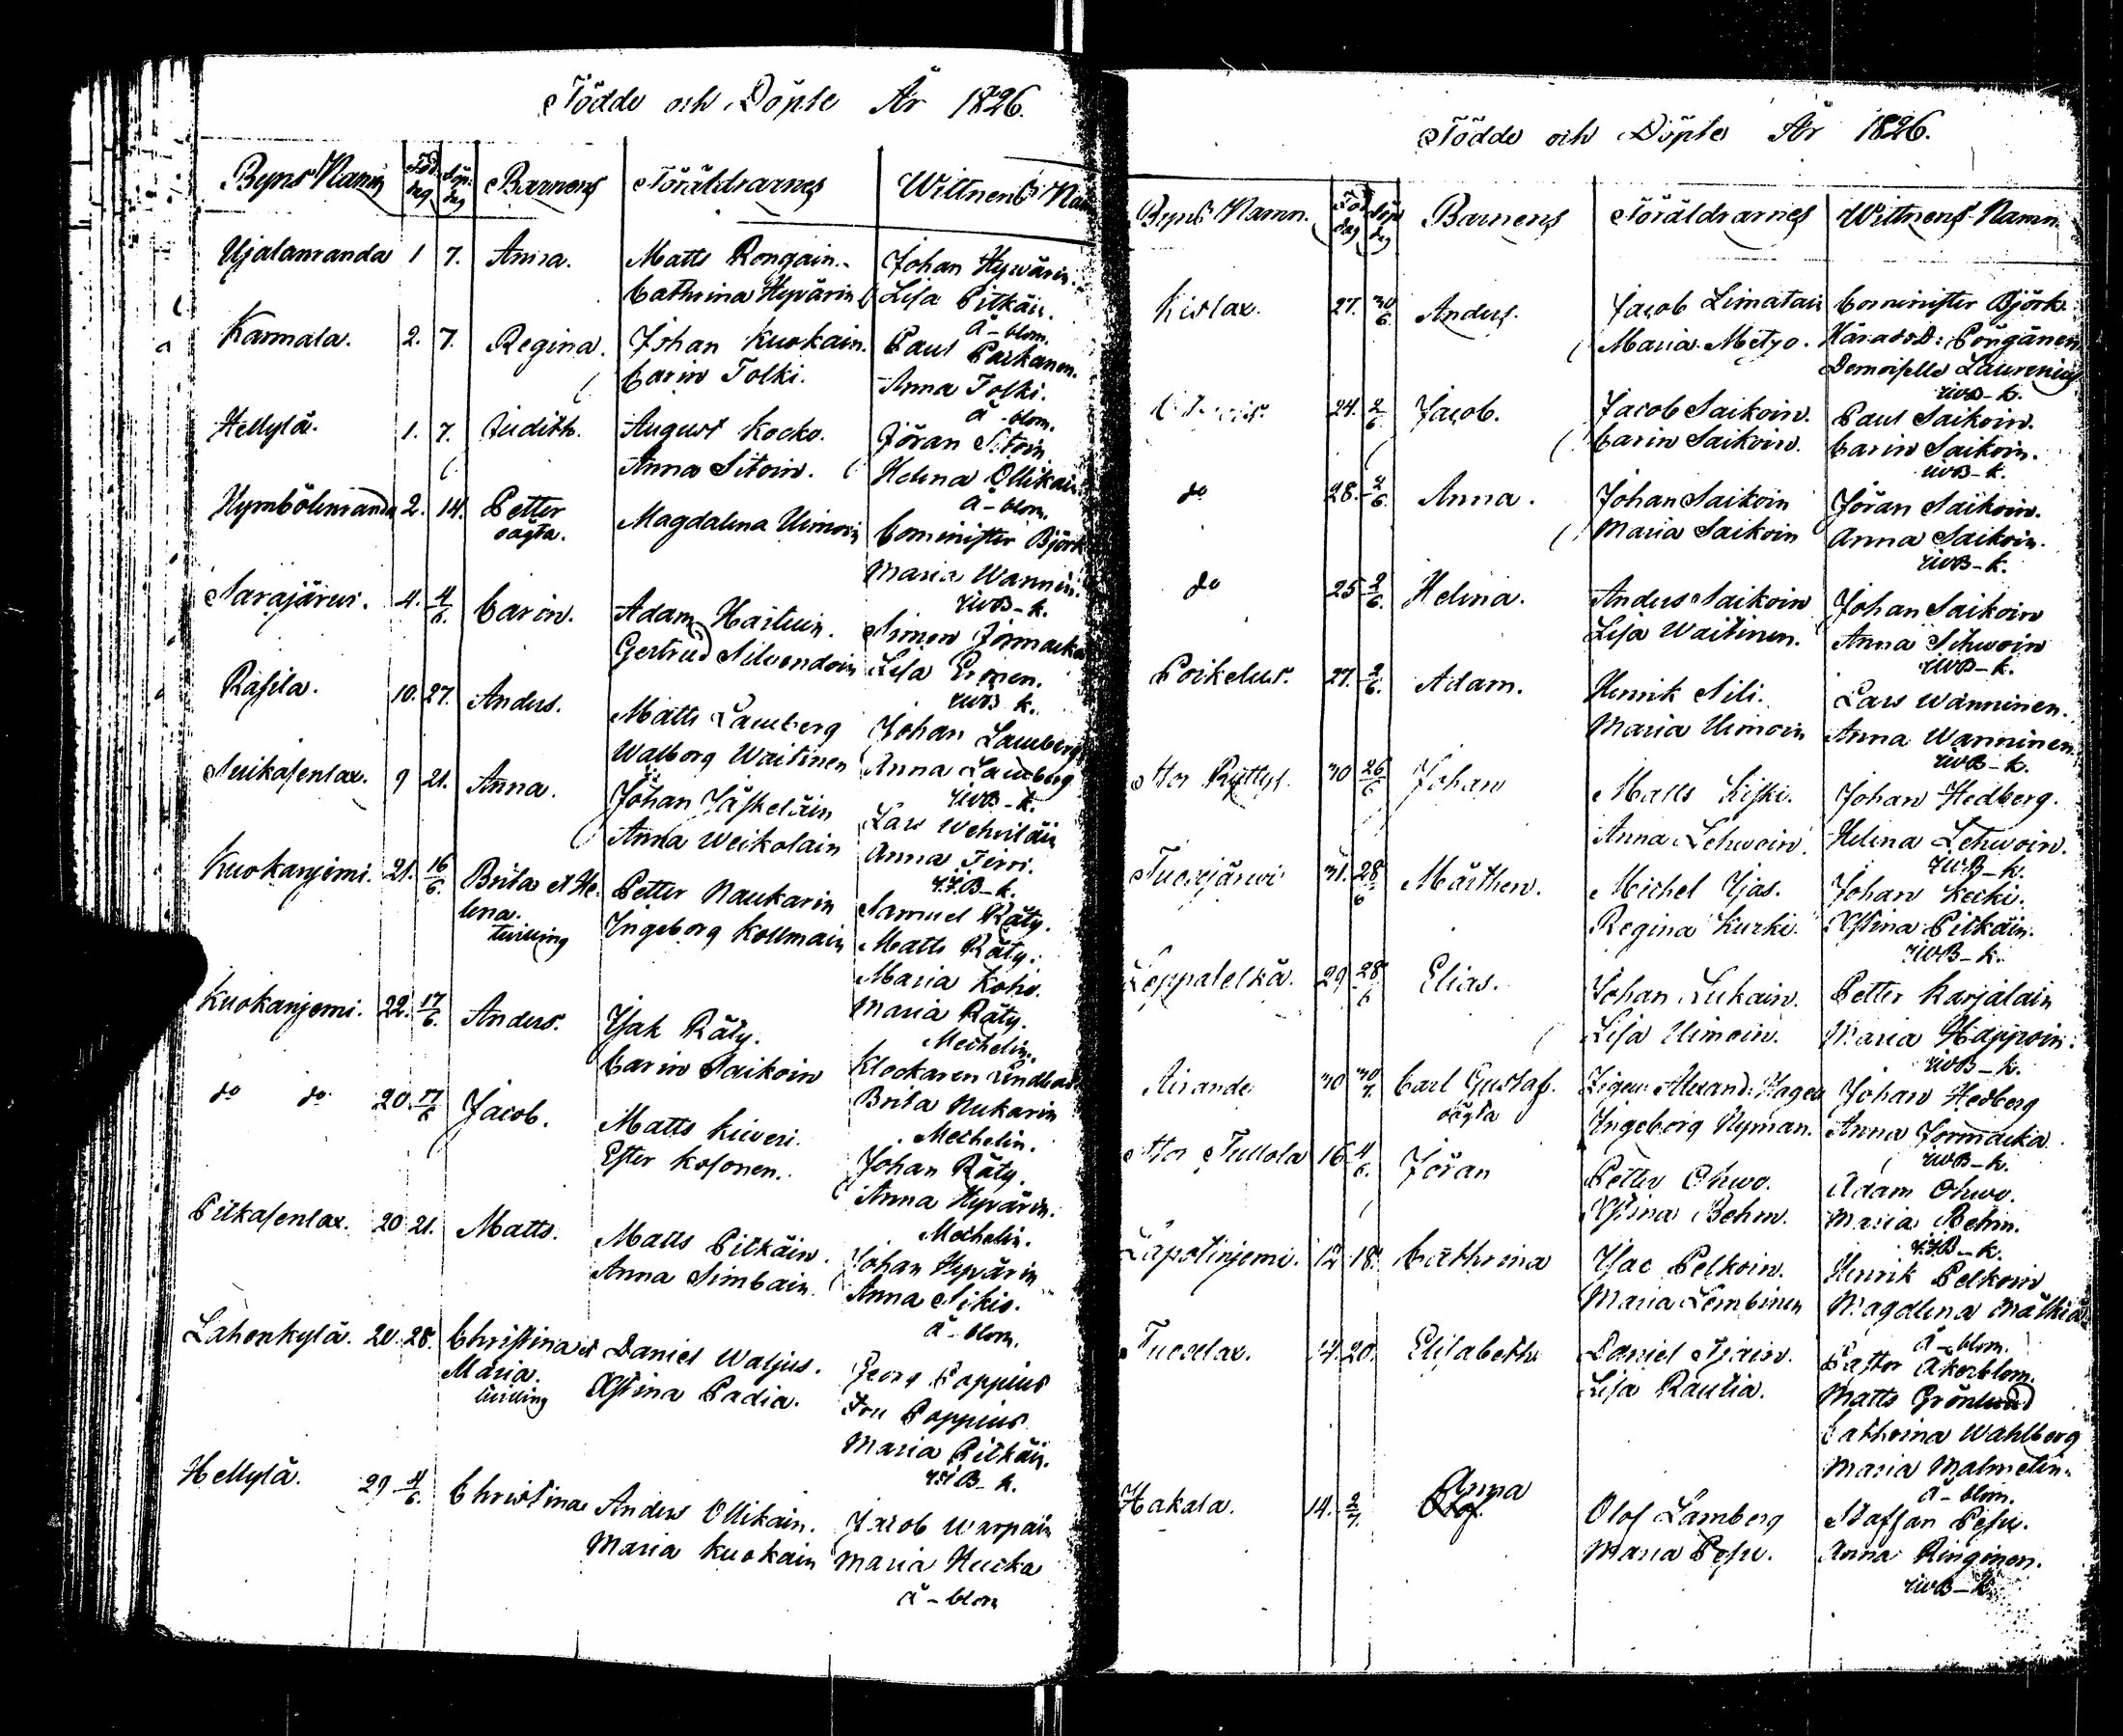 Födde och Döpte År 1826.
Byns Namn Föd. dag Döp. dag Barnens Föräldrarnes Wittnens Namn
Ujalanranda 1 7. Anna. Matts Rongain. Johan Hyvärin.
Cathrina Hyvärin Lisa Pitkäin.
å-blom.
Karmala. 2. 7. Regina. Johan Kuokain. Paul Parkanen.
Carin Tolki. Anna Tolki.
å-blom.
Hellylä. 1. 7. Judith. August Kocko. Jöran Sitoin.
Anna Sitoin. Helena Ollikain.
å-blom.
Kymbölenranda 2. 14. Petter Magdalena Uimoin Cominister Björk
oägta. Maria Wannin.
rwB-k.
Sarajärwi. 4. 4/6. Carin. Adam Hartuin. Simon Jormacka
Gertrud Silvendoin Lisa Eronen.
rwB-k.
Rasila. 10. 27. Anders. Matts Lamberg Johan Lamberg
Walborg Waitinen Anna Lamberg
rwB-k.
Suikasenlax. 9 21. Anna. Johan Jäskeläin Lars Wehviläin
Anna Weikolain Anna Terri.
rwB-k.
Kuokanjemi. 21. 16/6. Brita et He- Petter Naukarin Samuel Räty.
lena. Ingeborg Kollmain Matts Räty.
twilling Maria Koho.
Maria Räty.
Mechelin.
Kuokanjemi. 22. 17/6. Anders. Isak Räty. Klockaren Lindblad
Carin Saikoin Brita Nukarin
Mechelin.
do do 20. 17/6 Jacob. Matts Kiveri. Johan Räty.
Ester Kosonen. Anna Hyvärin.
Mechelin.
Pitkasenlax. 20 21. Matts. Matts Pitkäin. Johan Hyvärin
Anna Simbain. Anna Sikio.
å-blom.
Lahenkylä. 20. 28. Christina et Daniel Waljus. Georg Poppius
Maria. Xstina Padia. Fru Poppius
twilling Maria Pitkäin.
rwB-k.
Hellylä. 29 4/6. Christina Anders Ollikain. Jacob Warpain
Maria Kuokain Maria Hucka
å-blom
Födde och Döpte År 1826.
Byns Namn. Föd dag Döp dag Barnens Föräldrarnes Wittnens Namn.
Kirlax. 27. 30/6 Anders. Jacob Limatain Cominister Björk.
Maria Metzo. Häradsd: Pougänen
Demoiselle Laurenius
rwB-k.
24. 2/6 Jacob. Jacob Saikoin. Paul Saikoin.
Carin Saikoin. Carin Saikoin.
rwB-k.
do 28. 2/6. Anna. Johan Saikoin Jöran Saikoin.
Maria Saikoin Anna Saikoin.
rwB-k.
do 25 2/6. Helena. Anders Saikoin Johan Saikoin
Lisa Waitinen. Anna Sihwoin
rwB-k.
Poikelus. 27. 2/6. Adam. Henrik Sili. Lars Wanninen.
Maria Uimoin Anna Wanninen.
rwB-k.
Stor Ryttyl. 30 26/6 Johan Matts Kiski. Johan Hedberg.
Anna Lehwoin. Helena Lehwoin.
rwB-k.
Tuoxjärwi 31. 28/6 Märthen. Michel Ijas. Johan Kecki.
Regina Kurki. Xstina Pitkäin.
rwB-k.
Leppälelkä. 29 28/6 Elias. Johan Lukain. Petter Karjalain
Lisa Uimoin. Maria Happoin.
rwB-k.
Airanda 30 30/7. Carl Gustaf. Alexand: Hagen Johan Hedberg
oägta Ingeborg Nyman. Anna Jormacka.
rwB-k.
Stor Tullola 16 4/6. Jöran Petter Ohwo. Adam Ohwo.
Xstina Behm. Maria Behm.
rwB-k.
Läpötinjemi. 12 18. Cathrina Isac Pelkoin. Henrik Pelkoin
Maria Lembinen Magdlena Mälkiä
å-blom.
Tuoxlax. 14. 20. Elisabeth Daniel Ijäin. Pastor Åkerblom.
Lisa Rautia. Matts Grönlund
Cathrina Wahlberg
Maria Malmelin.
å-blom.
Hakala. 14. 2/7. Anna Olof Lamberg Staffan Pesu.
Olof. Maria Pesu. Anna Ringinen.
rwB-k.